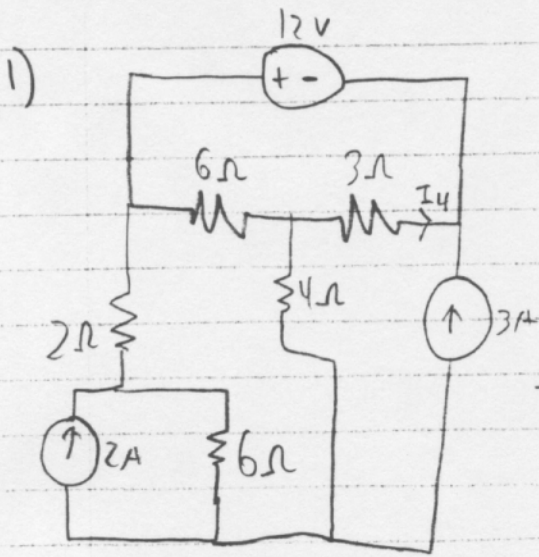 12 V
1)
+ -
6Ω
3Ω
I4
4Ω
2Ω
3A
2A
6Ω